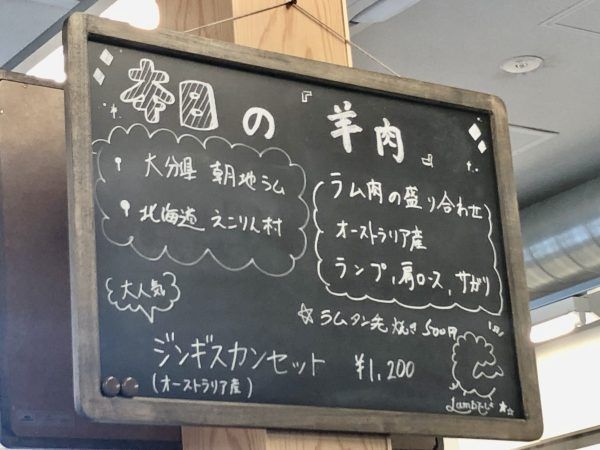 本日の『羊肉』
大分県 朝地ラム
北海道 えこりん村
ラム肉の盛り合わせ
オーストラリア産
ランプ、肩ロース、サガリ
大人気
☆ラムタン先焼き 500円
ジンギスカンセット ¥1,200
(オーストラリア産)